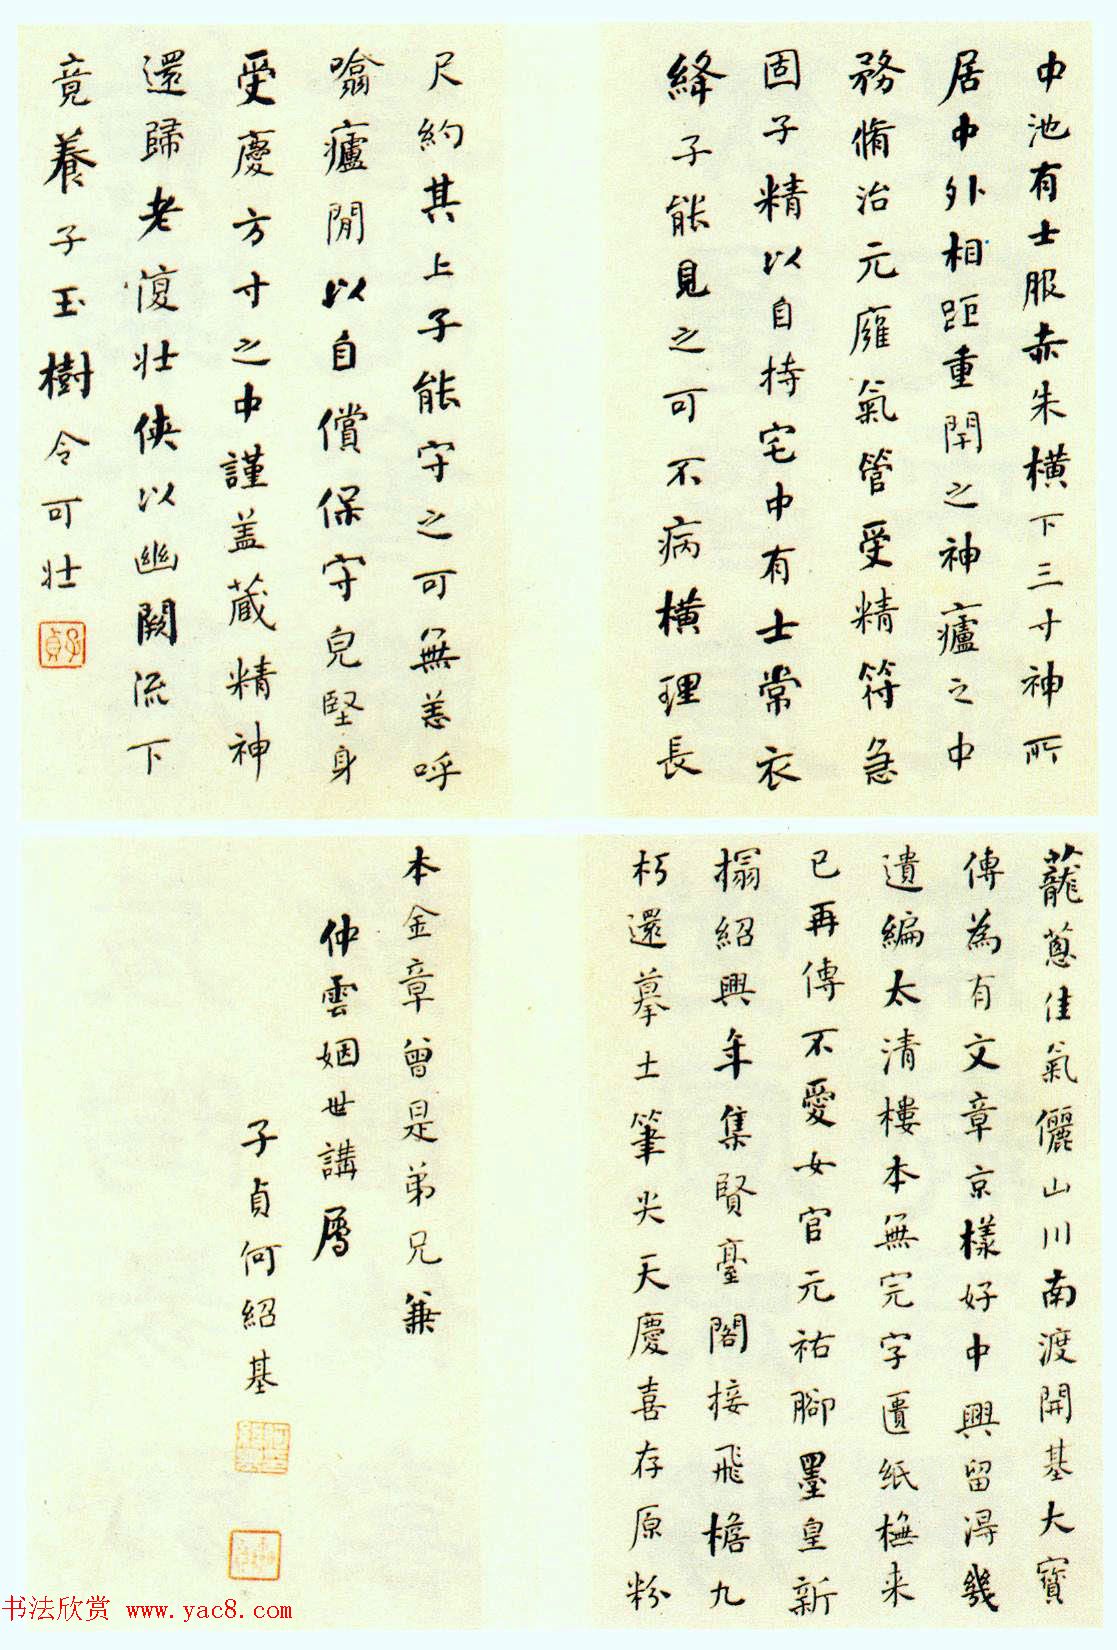 中池有士服赤朱橫下三寸神所
居中外相距重閉之神廬之中
務脩治元廱氣管受精符急
固子精以自持宅中有士常衣
絳子能見之可不病橫理長
尺約其上子能守之可無恙呼
噏廬間以自償保守皃堅身
受慶方寸之中謹盖藏精神
還歸老復壯俠以幽闕流下
竟養子玉樹令可壯
子貞
蘢蔥佳氣儷山川南渡開基大寶
傳為有文章京樣好中興留淂幾
遺編太清樓本無完字匱紙橅来
已再傳不愛女官元祐腳墨皇新
搨紹興年集賢臺閣接飛檐九
朽還摹士筆尖天慶喜存原粉
本金章曾是弟兄兼
仲雲姻世講屬
子貞何紹基
书法欣赏 www.yac8.com